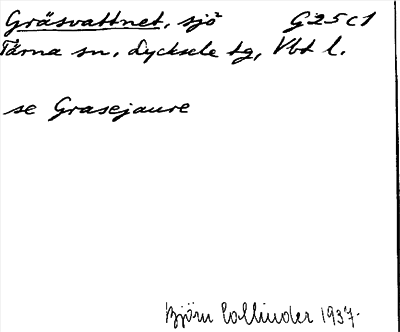 Gräsvattnet, sjö G25c1
Tärna sn, Lycksele tg, Vbt l.
se Grasejaure
Björn Collinder 1937.